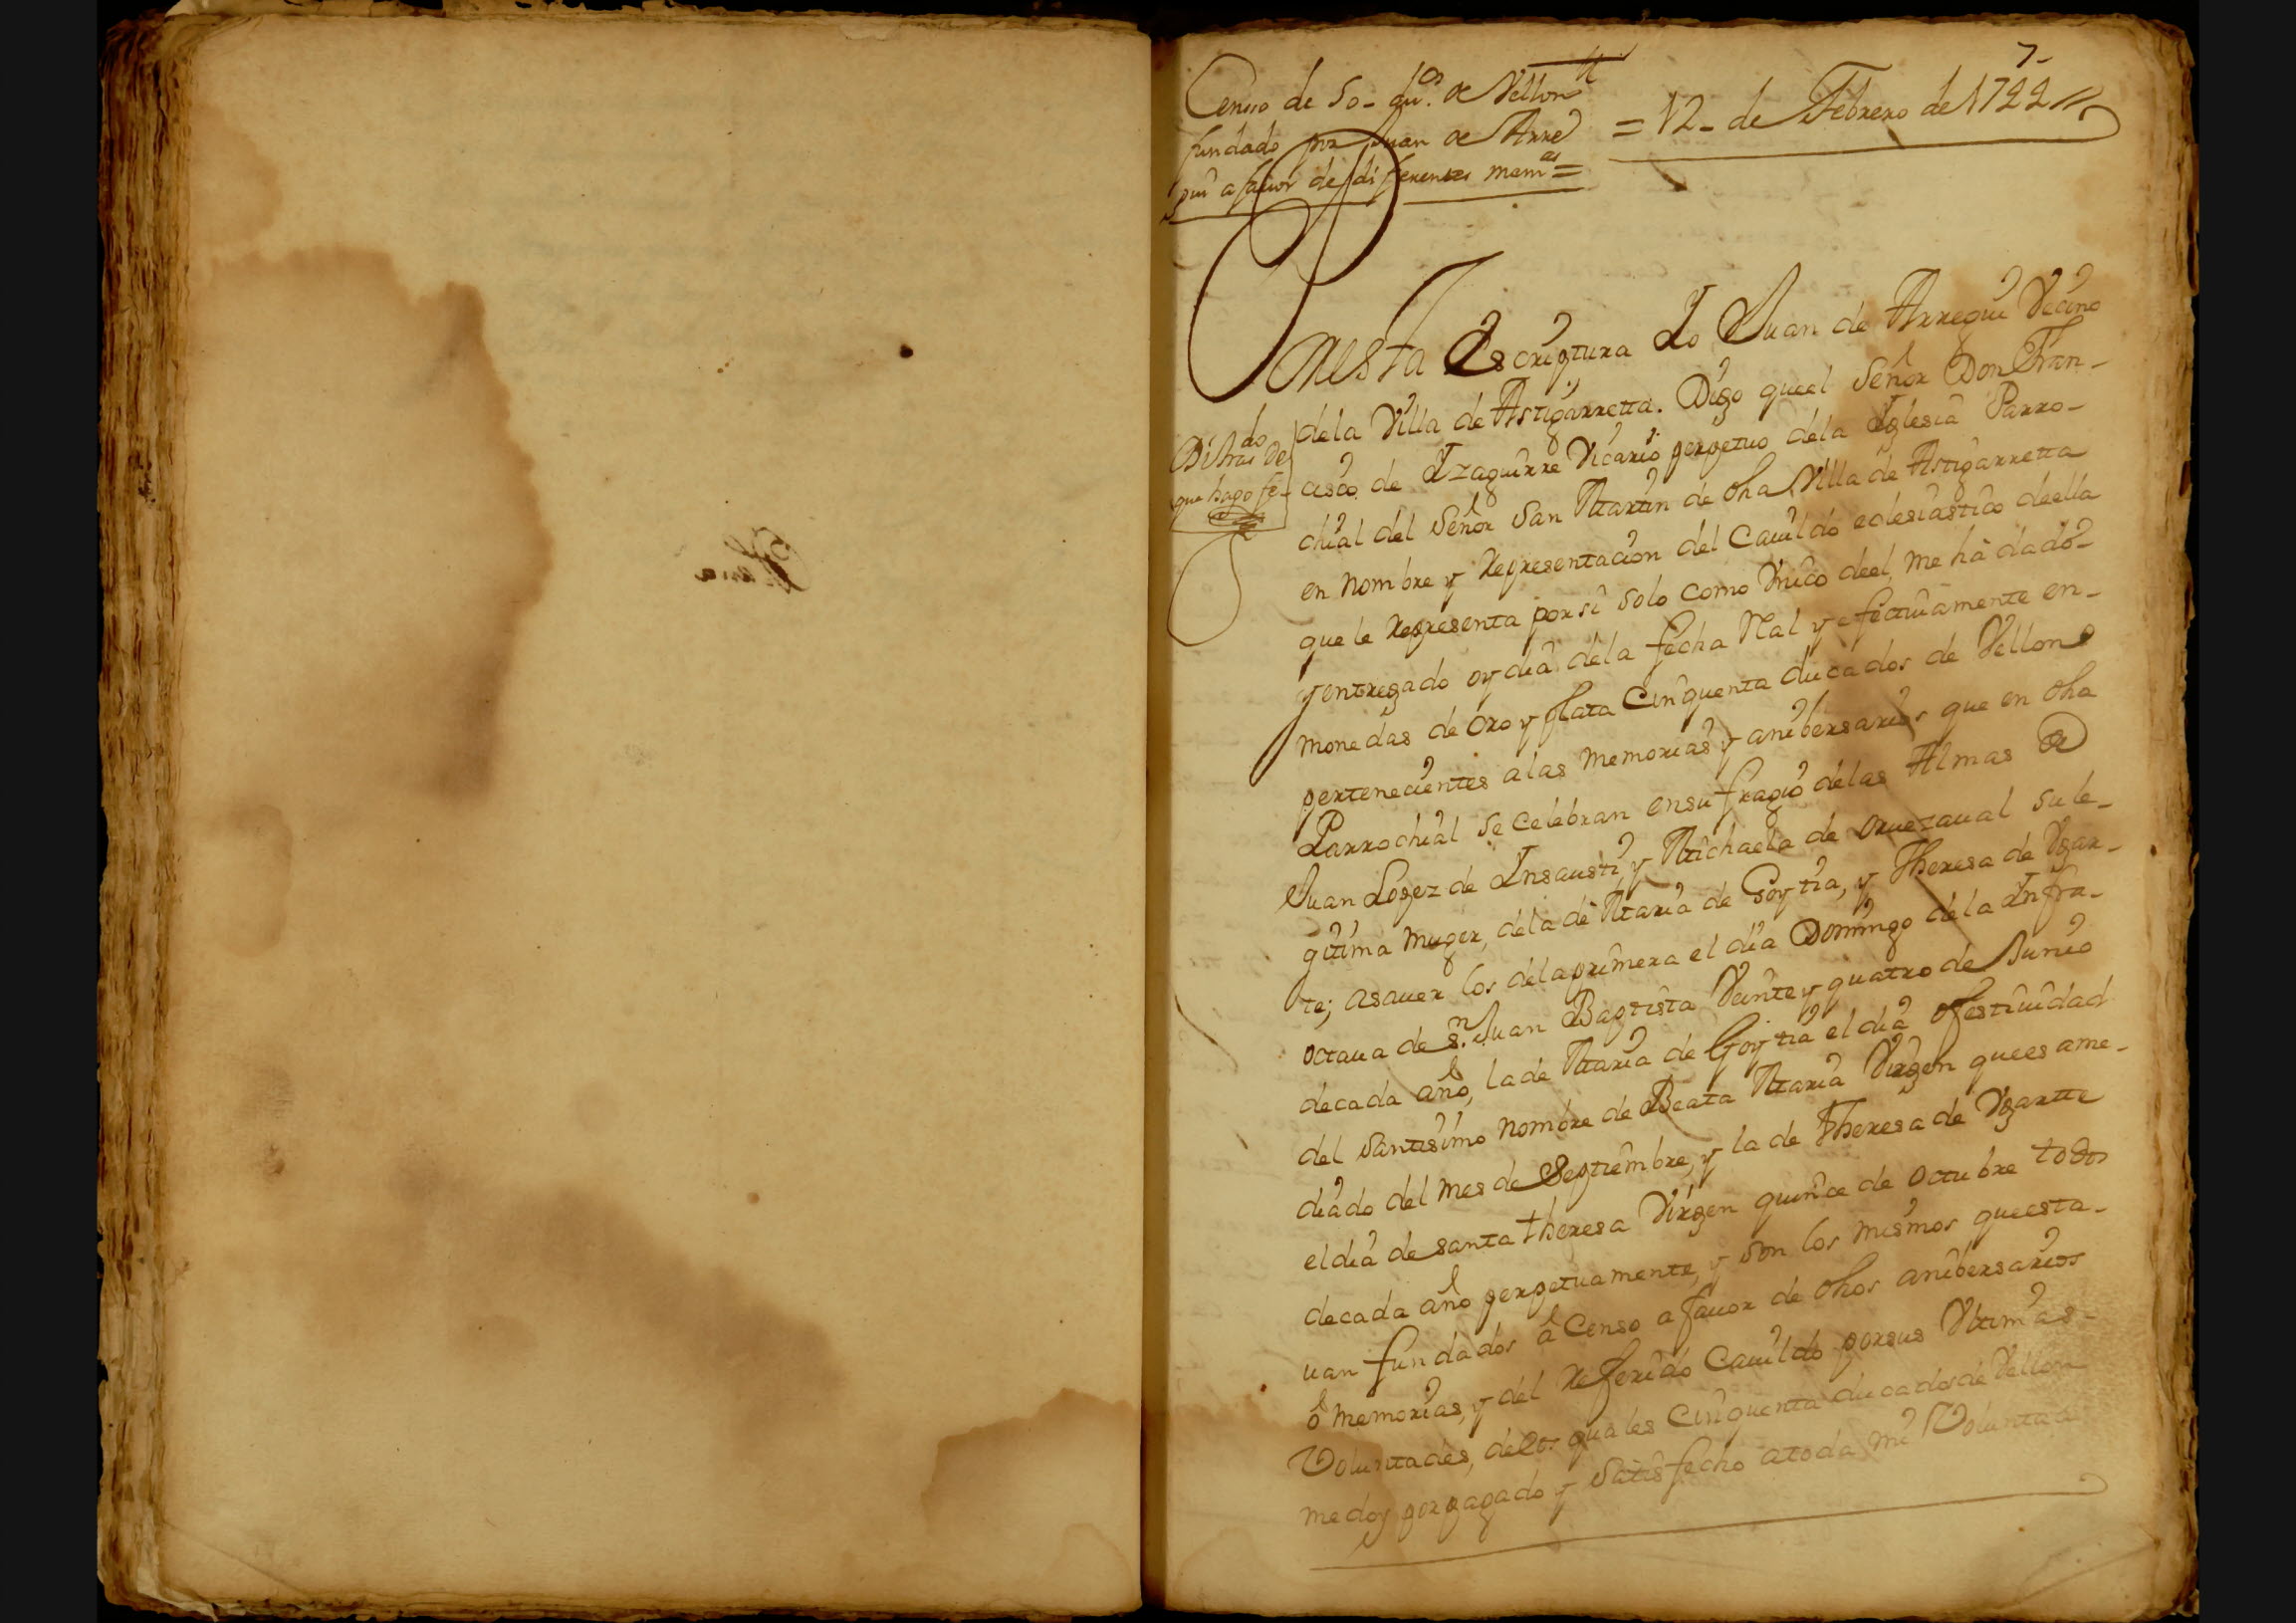 7-
Censo de 50- du.os de Vellon
fundado por Juan de Arre
gui a fauor de diferentes mem.as =
= 12- de Febrero de 1722 //
En esta Escriptura Yo Juan de Arregui Vecino
dela Villa de Astigarretta. Digo queel Señor Don Fran-
do
que hago fe-
cisco de Yzaguirre Vicario perpetuo dela Yglesia Parro-
chial del Señor San Martin de dha Villa de Astigarretta
en nombre y Representacion del Cauildo eclesiastico deella
que le Representa porsi solo como Vnico deel, me há dado
y entregado oy dia dela fecha Rl y efectiuamente en-
monedas de Oro y plata Cinquenta ducados de Vellon
pertenecientes alas memorias y anibersarios que en dha
Parrochial se celebran ensufragio delas Almas de
Juan Lopez de Ynsausti, y Michaela de Oruezaual su le-
gitima muger, dela de Maria de Goytia, y Theresa de Vgar-
te; asauer los delaprimera el dia Domingo dela Ynfra-
octaua de S.n Juan Baptista Veinte y quatro de Junio
decada año, lade Maria de Goytia el dia festiuidad
del santisimo nombre de Beata Maria Virgen quees ame-
diado del mes de Septiembre, y la de Theresa de Vgartte
eldia de santa theresa Virgen quince de Octubre todos
decada año perpetuamente, y son los mismos queesta-
uan fundados â Censo a fauor de dhos anibersarios
ô memorias, y del Referido Cauildo porsus Vltimas-
Voluntades, delos quales Cinquenta ducados de Vellon
me doy por pagado y satisfecho atoda mi Voluntad